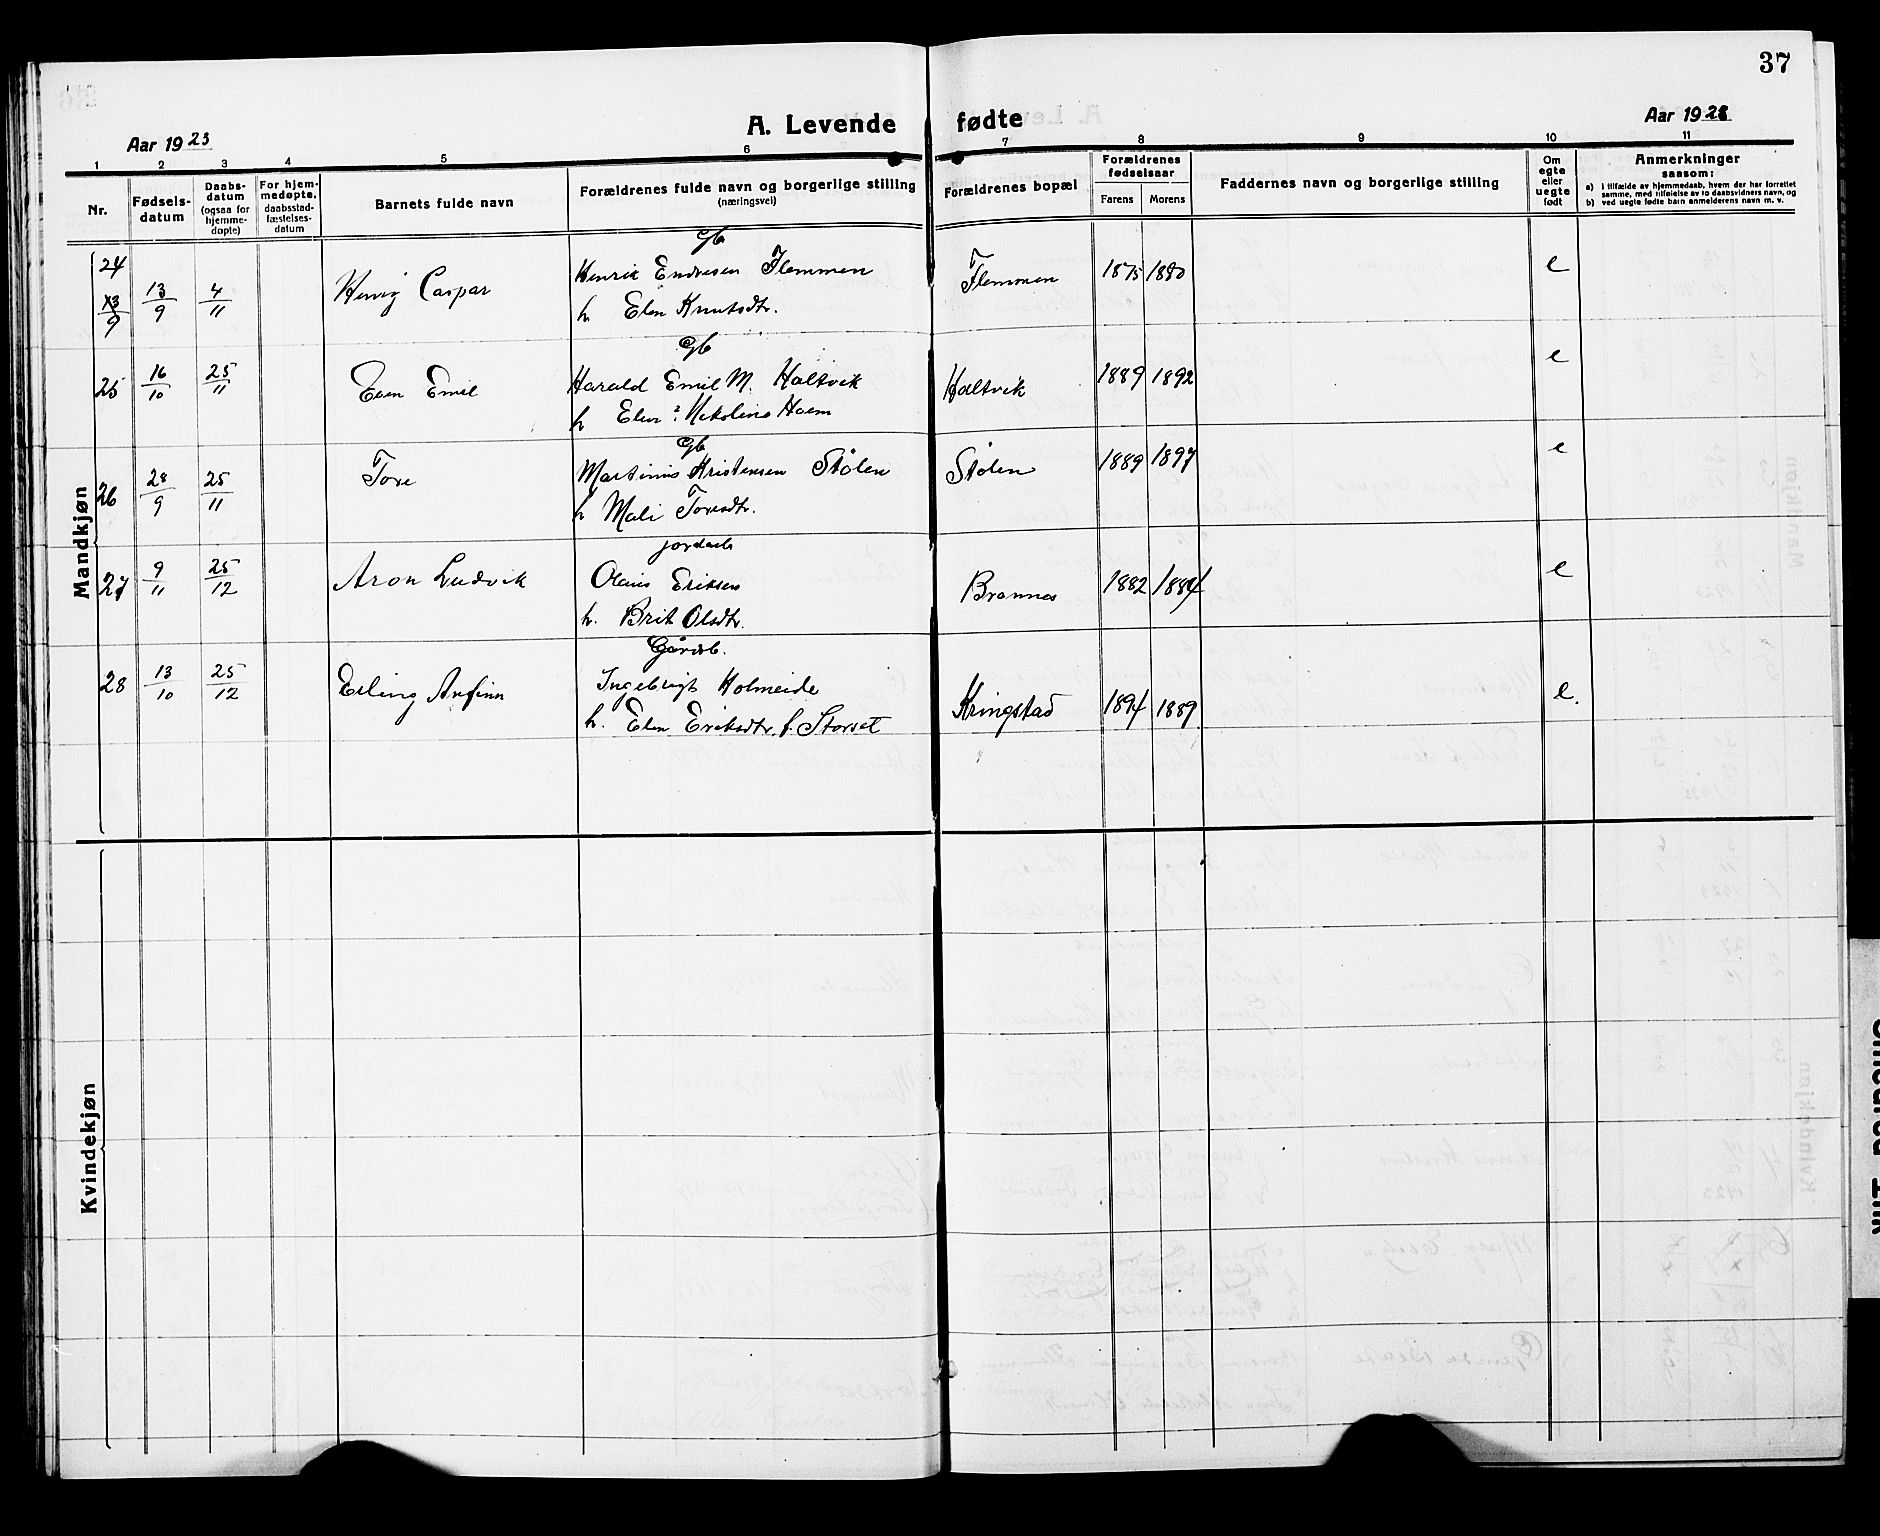 37
A. Levende fødte
Aar 1923
Aar 1923
1 2 3 4 5 6 7 8 9 10 11
Nr.
Fødsels-
datum
Daabs-
datum
(ogsaa for
hjemme-
døpte)
For hjem-
medøpte,
daabsstad-
fæstelses-
datum
Barnets fulde navn
Forældrenes fulde navn og borgerlige stilling
(næringsvei)
Forældrenes bopæl
Forældrenes
fødselsaar
Farens Morens
Faddernes navn og borgerlige stilling
Om
egte
eller
uegte
født
Anmerkninger
saasom:
a) i tilfælde av hjemmedaab, hvem der har forrettet
samme, med tilføielse av to daabsvidners navn, og
b) ved uegte fødte barn anmelderens navn m. v.
Mandkjøn
Gb
24 13/9 4/11 Henrik Endresen Flemmen Flemmen 1875 1880 e
Caspar
h. Elen Knutsdtr.
Gb
25 16/10 25/11 Emil Harald Emil M. Haltvik Haltvik 1889 1892 e
h Elen Nikoline Haem
Gb
26 28/9 25/11 Tore Martinus Kristensen Stølen Stølen 1889 1897 e
h Mali Toresdtr.
jordarb
27 9/11 25/12 Aron Ludvik Olaus Eriksen Brannes 1882 1884 e
h. Brit Olsdtr.
Gårdb.
28 13/10 25/12 Erling Arfinn Ingebrigt Holmeide Kringstad 1894 1889 e.
h. Elen Eriksdtr. f. Storset
Kvindekjøn